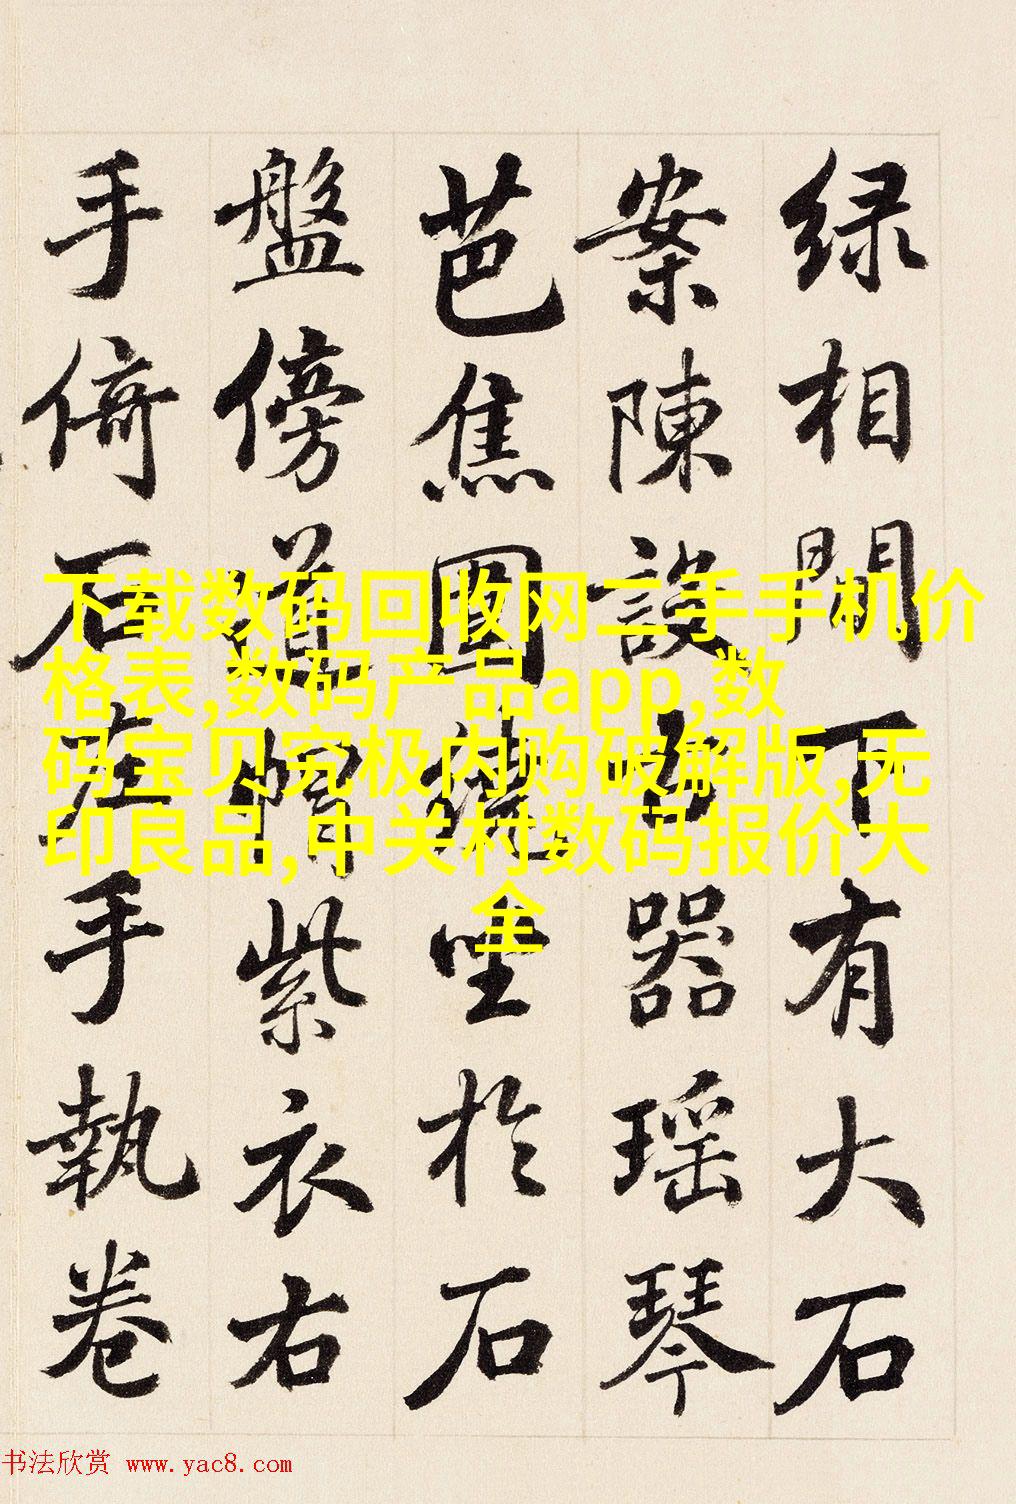 绿相間下有大石
案陳設古器瑶琴
芭焦圍繞坐於石
盤傍道帽紫衣右
手倚石左手執卷
下载数码回收网二手手机价
格表,数码产品app,数
码宝贝究极内购破解版,无
印良品,中关村数码报价大
全
书法欣赏 www.yac8.com